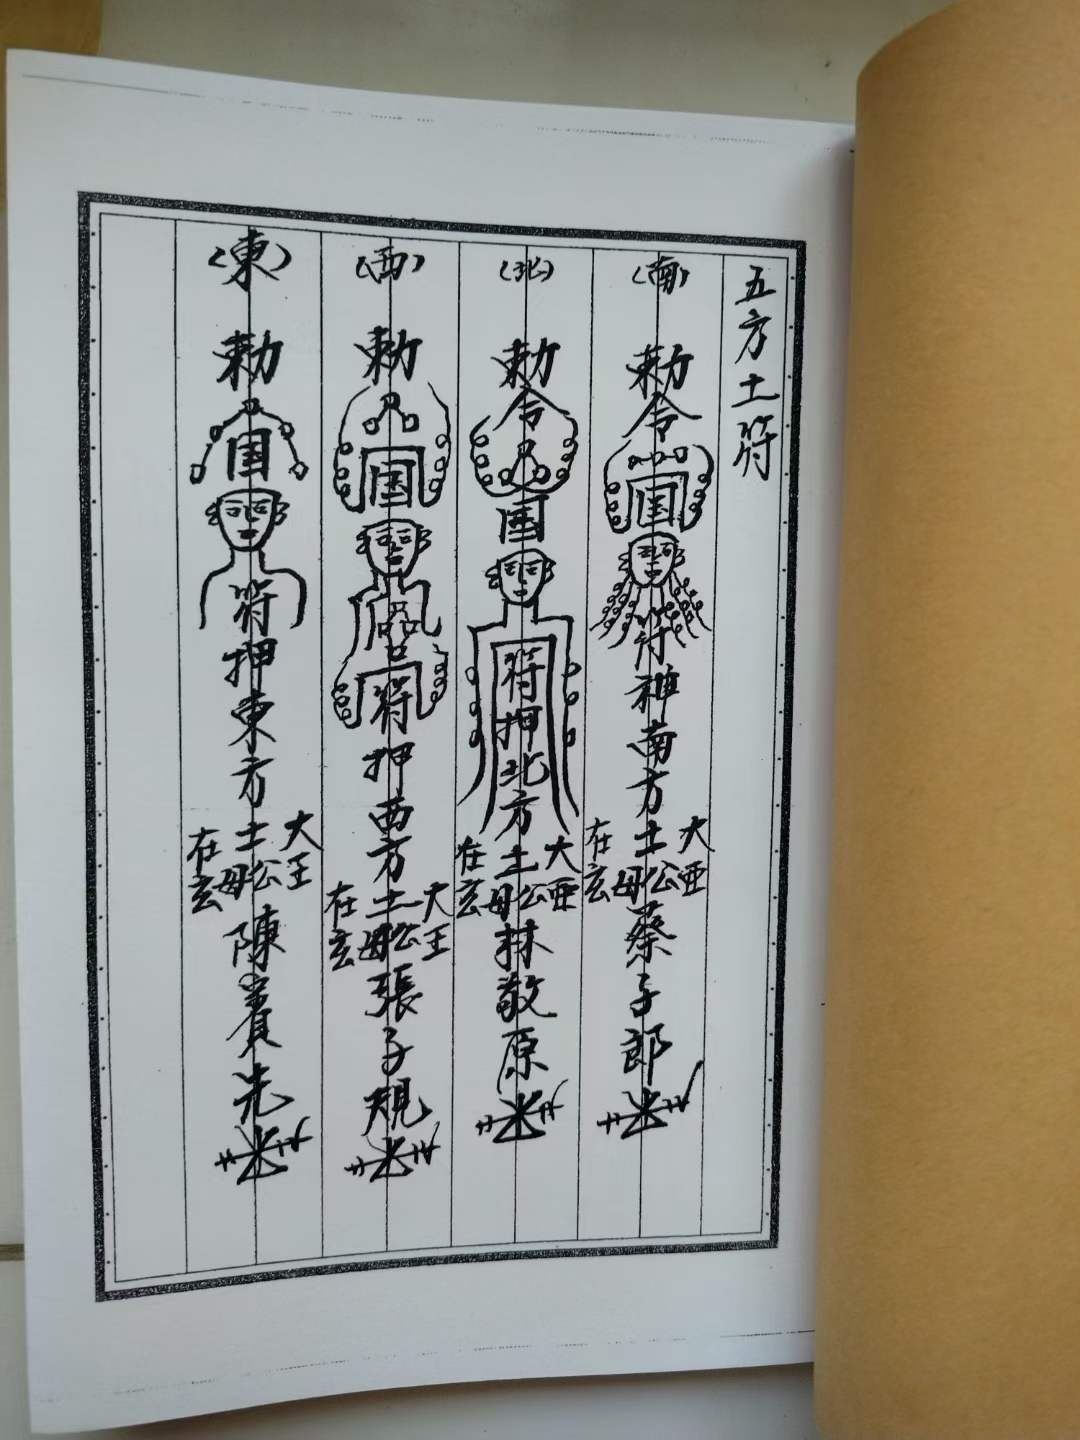 五方土符
(南)
勅令
国
符神南方土公
母
大亜
在玄
蔡子郎
(北)
勅令
国
符押北方土公
母
大亜
在玄
林敬原
(西)
勅
国
符押西方土公
母
大王
在玄
張子規
(東)
勅
国
符押東方土公
母
大王
在玄
陳貴先